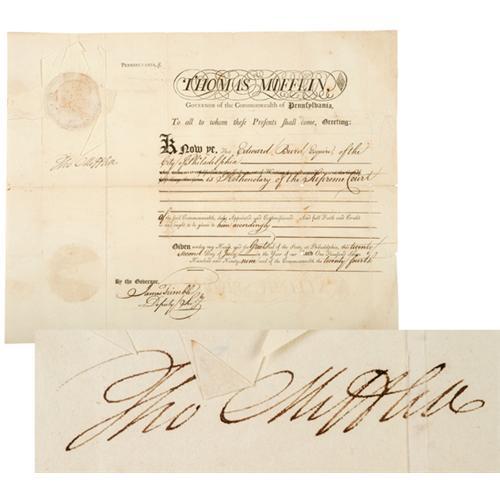 PENNSYLVANIA, ſſ.
THOMAS MIFFLIN,
GOVERNOR of the COMMONWEALTH of Pennſylvania,
To all to whom theſe Preſents ſhall come, Greeting:
Know ye, That Edward Burd Esquire of the
City of Philadelphia
is Prothonotary of the Supreme Court
of the ſaid Commonwealth, duly Appointed and Commiſſioned. And full Faith and Credit
is and ought to be given to him accordingly
Given under my Hand and the Great Seal of the State, at Philadelphia, this twenty
second Day of July in the Year of our Lord One Thouſand Seven
Hundred and Ninety nine and of the Commonwealth the twenty fourth
By the Governor.
James Trimble
Deputy Secy
Tho Mifflin
Tho Mifflin